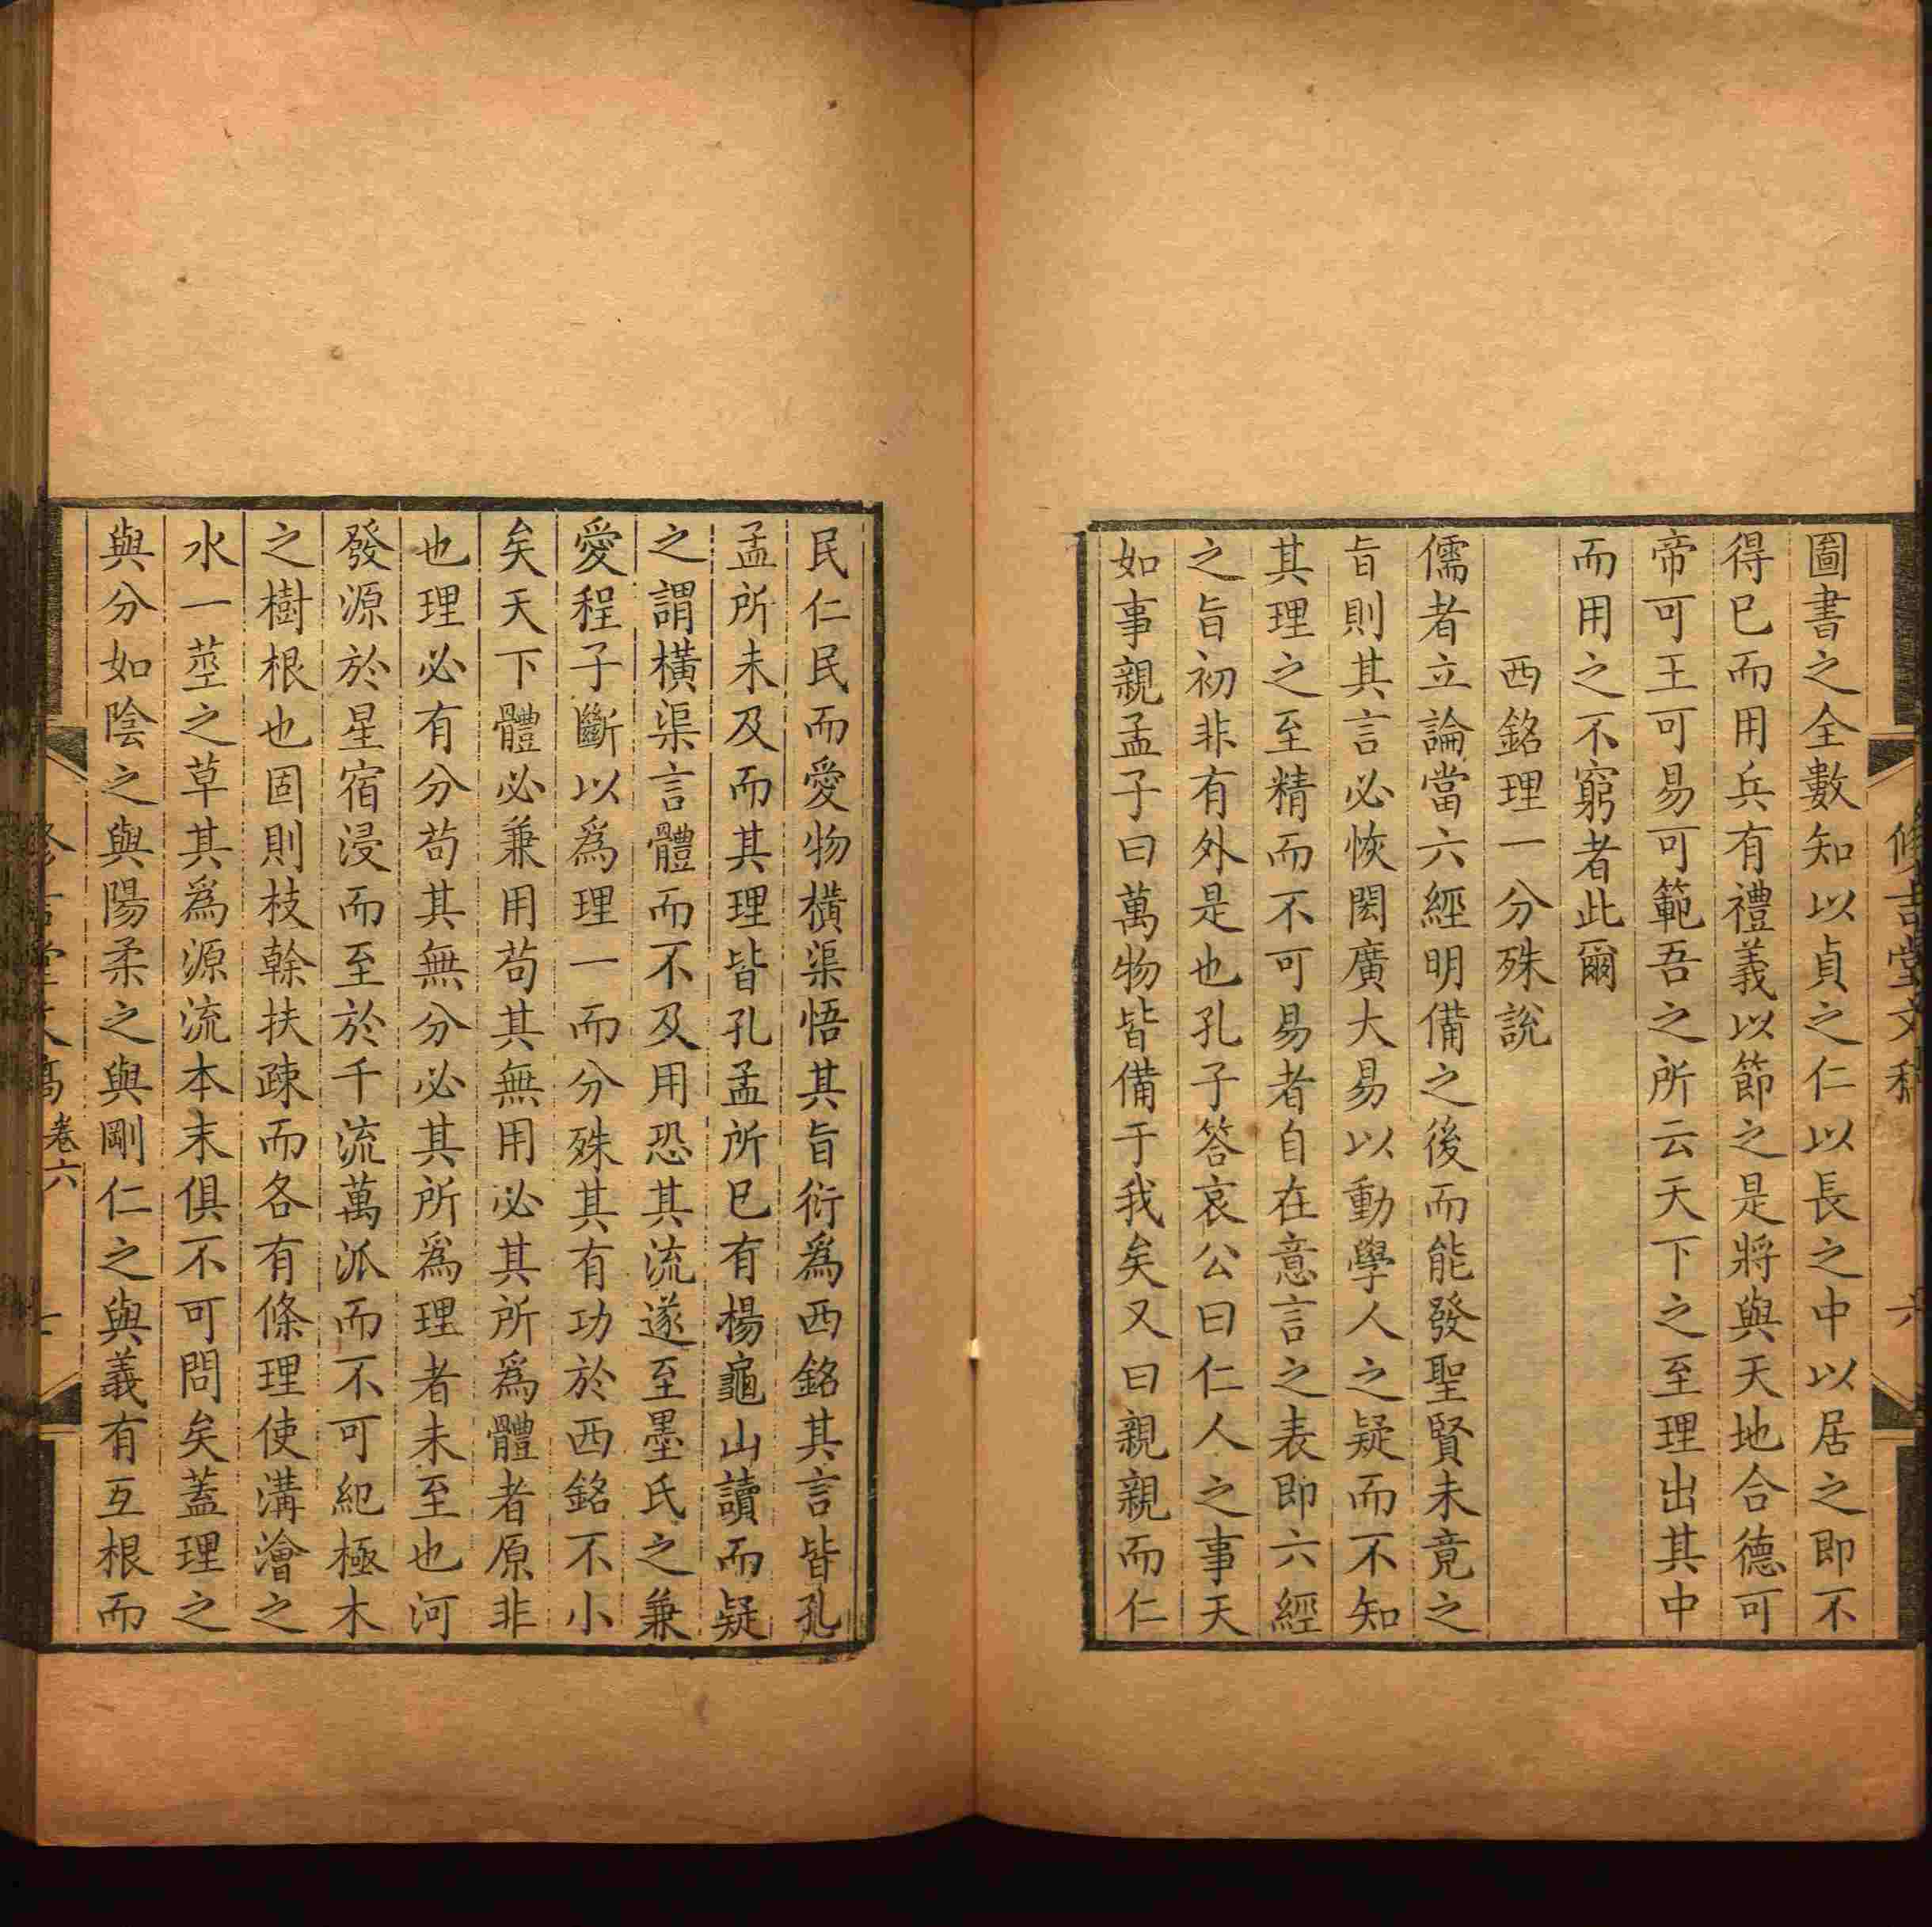 圖書之全數知以貞之仁以長之中以居之即不
得已而用兵有禮義以節之是將與天地合德可
帝可王可易可範吾之所云天下之至理出其中
而用之不窮者此爾
西銘理一分殊說
儒者立論當六經明備之後而能發聖賢未竟之
旨則其言必恢閎廣大易以動學人之疑而不知
其理之至精而不可易者自在意言之表即六經
之旨初非有外是也孔子答哀公曰仁人之事天
如事親孟子曰萬物皆備于我矣又曰親親而仁
民仁民而愛物橫渠悟其旨衍為西銘其言皆孔
孟所未及而其理皆孔孟所已有楊龜山讀而疑
之謂橫渠言體而不及用恐其流遂至墨氏之兼
愛程子斷以為理一而分殊其有功於西銘不小
矣天下體必兼用苟其無用必其所為體者原非
也理必有分苟其無分必其所為理者未至也河
發源於星宿浸而至於千流萬派而不可紀極木
之樹根也固則枝榦扶疎而各有條理使溝澮之
水一莖之草其為源流本末俱不可問矣蓋理之
與分如陰之與陽柔之與剛仁之與義有互根而
卷六